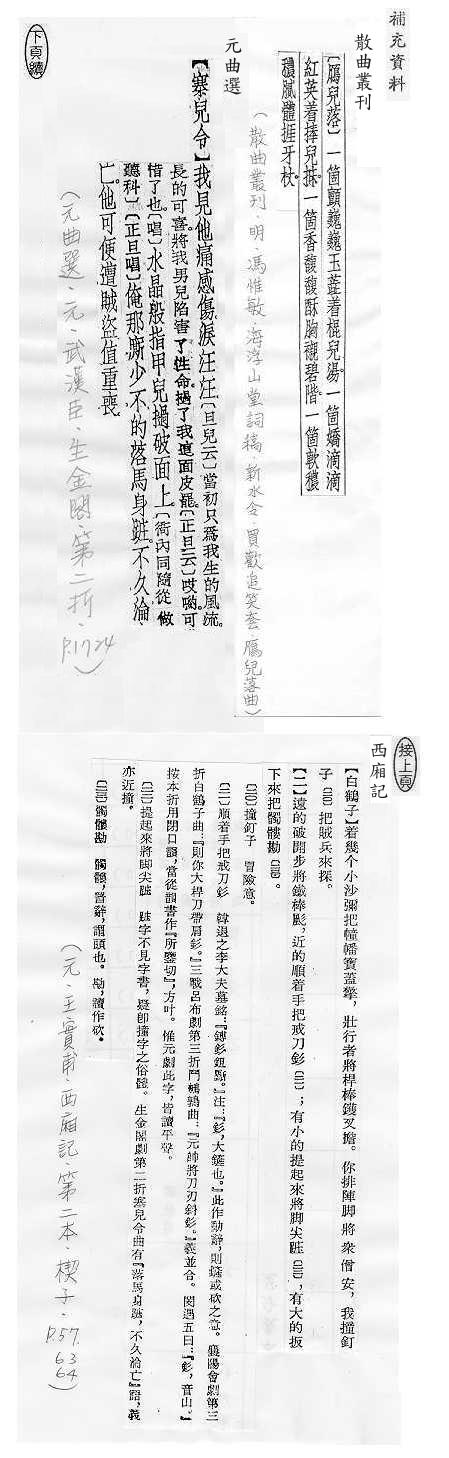 補充資料
散曲叢刊
〔鴈兒落〕一箇顫巍巍玉莛着棍兒湯。一箇嬌滴滴
紅英着捧兒拆。一箇香馥馥酥胸襯碧階。一箇軟穠
穠膩體捱牙杖。
（散曲叢刊．明．馮惟敏．海浮山堂詞稿．新水令．買歡追笑套．鴈兒落曲）
元曲選
【寨兒令】我見他痛感傷淚汪汪〔旦兒云〕當初只爲我生的風流。
長的可喜。將我男兒陷害了性命。摑了我這面皮罷。〔正旦云〕哎喲。可
惜了也。〔唱〕水晶般指甲兒摑破面上。〔衙內同隨從做
聽科〕〔正旦唱〕俺那厮少不的落馬身䟫。不久淪
亡。他可便遭賊盜值重喪。
（元曲選．元．武漢臣．生金閣．第二折．P.1724
下頁續
接上頁
西廂記
【白鶴子】着幾个小沙彌把幢幡寶蓋擎，壯行者將桿棒鑊叉擔。你排陣脚將衆僧安，我撞釘
子〔二〇〕把賊兵來探。
【二】遠的破開步將鐵棒颩，近的順着手把戒刀釤〔二一〕；有小的提起來將脚尖䟫〔二二〕，有大的扳
下來把髑髏勘〔二三〕。
〔二〇〕撞釘子　冒險意。
〔二一〕順着手把戒刀釤　韓退之李大夫墓銘：『鎛釤鉏斸。』注：『釤，大鐮也。』此作動辭，則鏟或砍之意。襄陽會劇第三
折白鶴子曲：『則你大桿刀帶肩釤。』三戰呂布劇第三折鬥鵪鶉曲：『元帥將刀刃斜釤。』義並合。閔遇五曰：『釤，音山。』
按本折用閉口韻，當從韻書作『所鑒切』，方叶。惟元劇此字，皆讀平聲。
〔二二〕提起來將脚尖䟫　䟫字不見字書，疑卽撞字之俗體。生金閣劇第二折寨兒令曲有『落馬身䟫，不久淪亡』語，義
亦近撞。
〔二三〕髑髏勘　髑髏，晉辭，謂頭也。勘，讀作砍。
（元．王實甫．西廂記．第二本．楔子．P.57. 63 64）